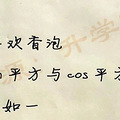 欢香泡
平方与cos平方
如一